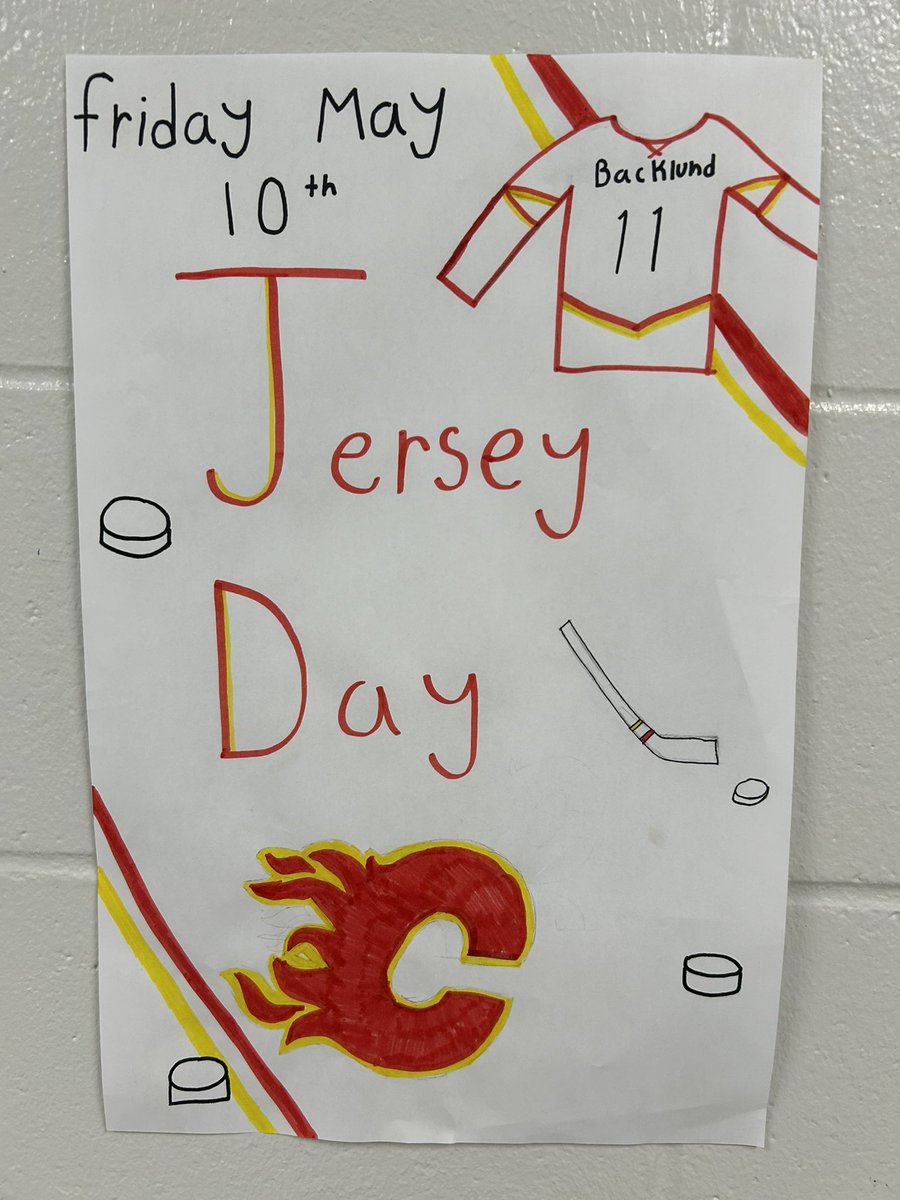 friday May
10th
Backlund
11
Jersey
Day
C